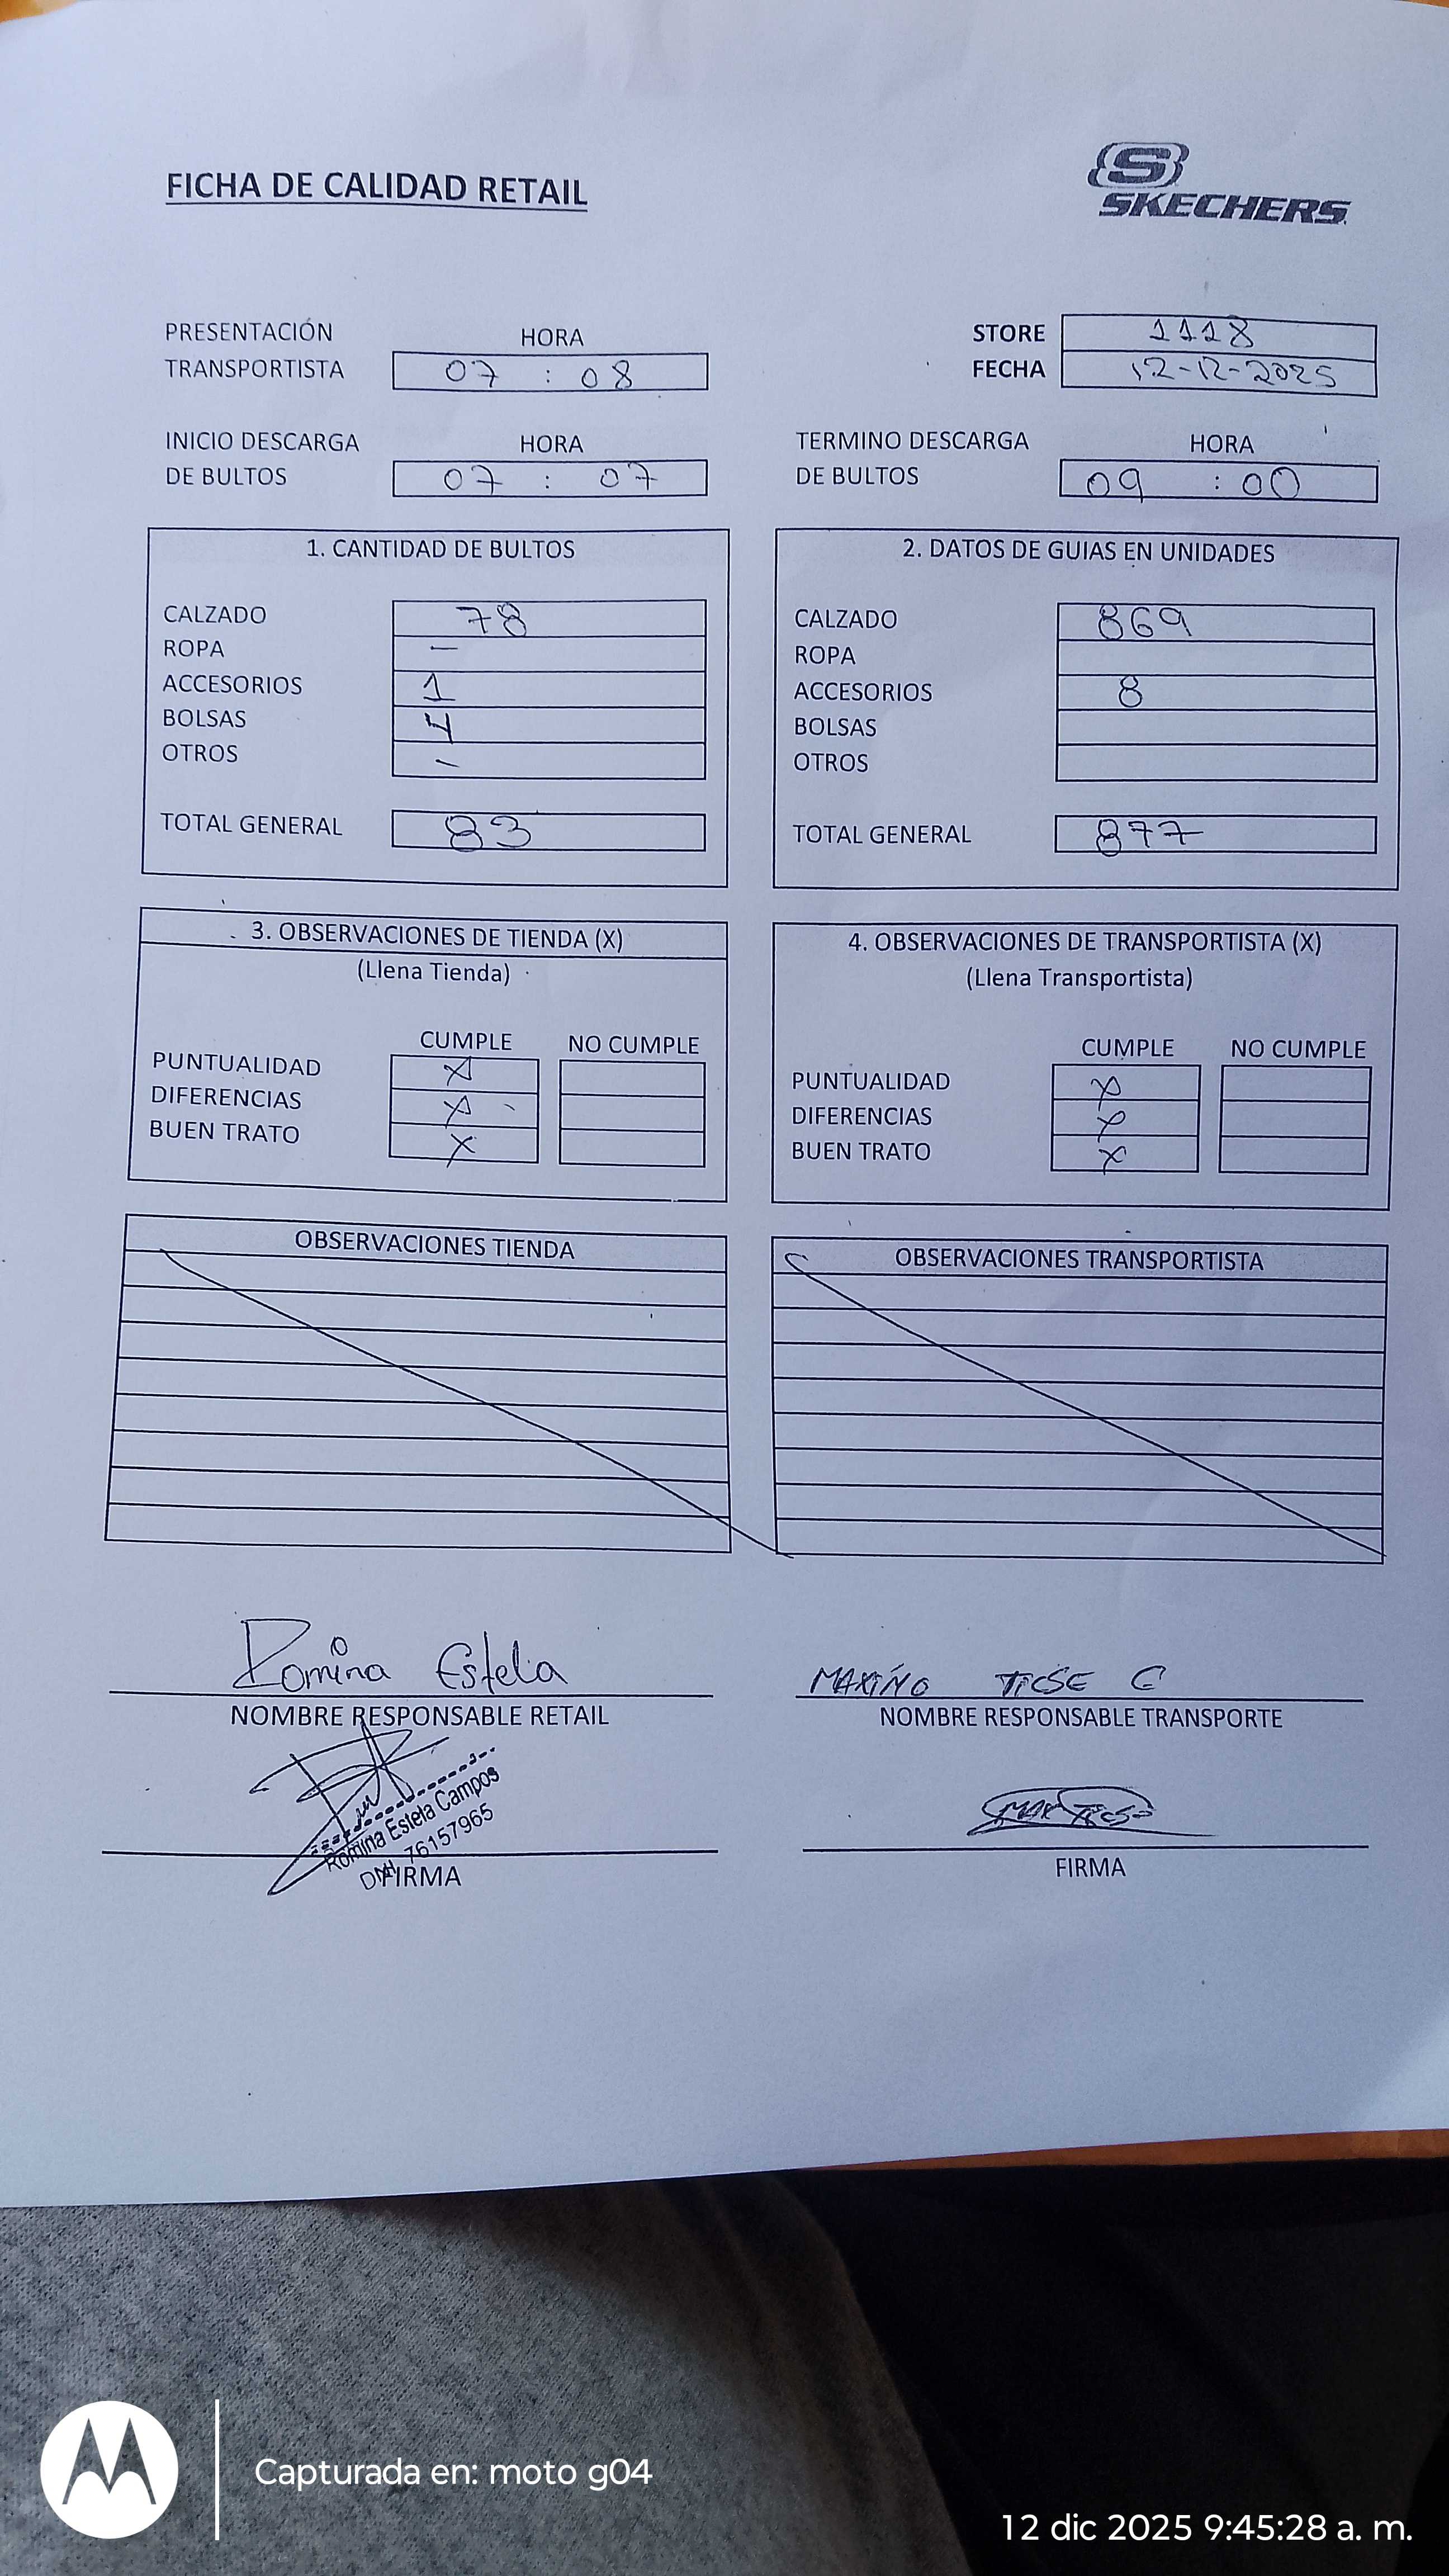 FICHA DE CALIDAD RETAIL
S
SKECHERS
PRESENTACIÓN HORA STORE 1118
TRANSPORTISTA 07 : 08 FECHA 12-12-2025
INICIO DESCARGA HORA TERMINO DESCARGA HORA
DE BULTOS 07 : 07 DE BULTOS 09 : 00
1. CANTIDAD DE BULTOS
CALZADO 78
ROPA —
ACCESORIOS 1
BOLSAS 4
OTROS —
TOTAL GENERAL 83
2. DATOS DE GUIAS EN UNIDADES
CALZADO 869
ROPA
ACCESORIOS 8
BOLSAS
OTROS
TOTAL GENERAL 877
3. OBSERVACIONES DE TIENDA (X)
(Llena Tienda)
CUMPLE NO CUMPLE
PUNTUALIDAD X
DIFERENCIAS X
BUEN TRATO X
4. OBSERVACIONES DE TRANSPORTISTA (X)
(Llena Transportista)
CUMPLE NO CUMPLE
PUNTUALIDAD X
DIFERENCIAS X
BUEN TRATO X
OBSERVACIONES TIENDA
OBSERVACIONES TRANSPORTISTA
Romina Estela
NOMBRE RESPONSABLE RETAIL
Romina Estela Campos
DNI 76157965
FIRMA
MAXIÑO TICSE C
NOMBRE RESPONSABLE TRANSPORTE
FIRMA
Capturada en: moto g04
12 dic 2025 9:45:28 a. m.